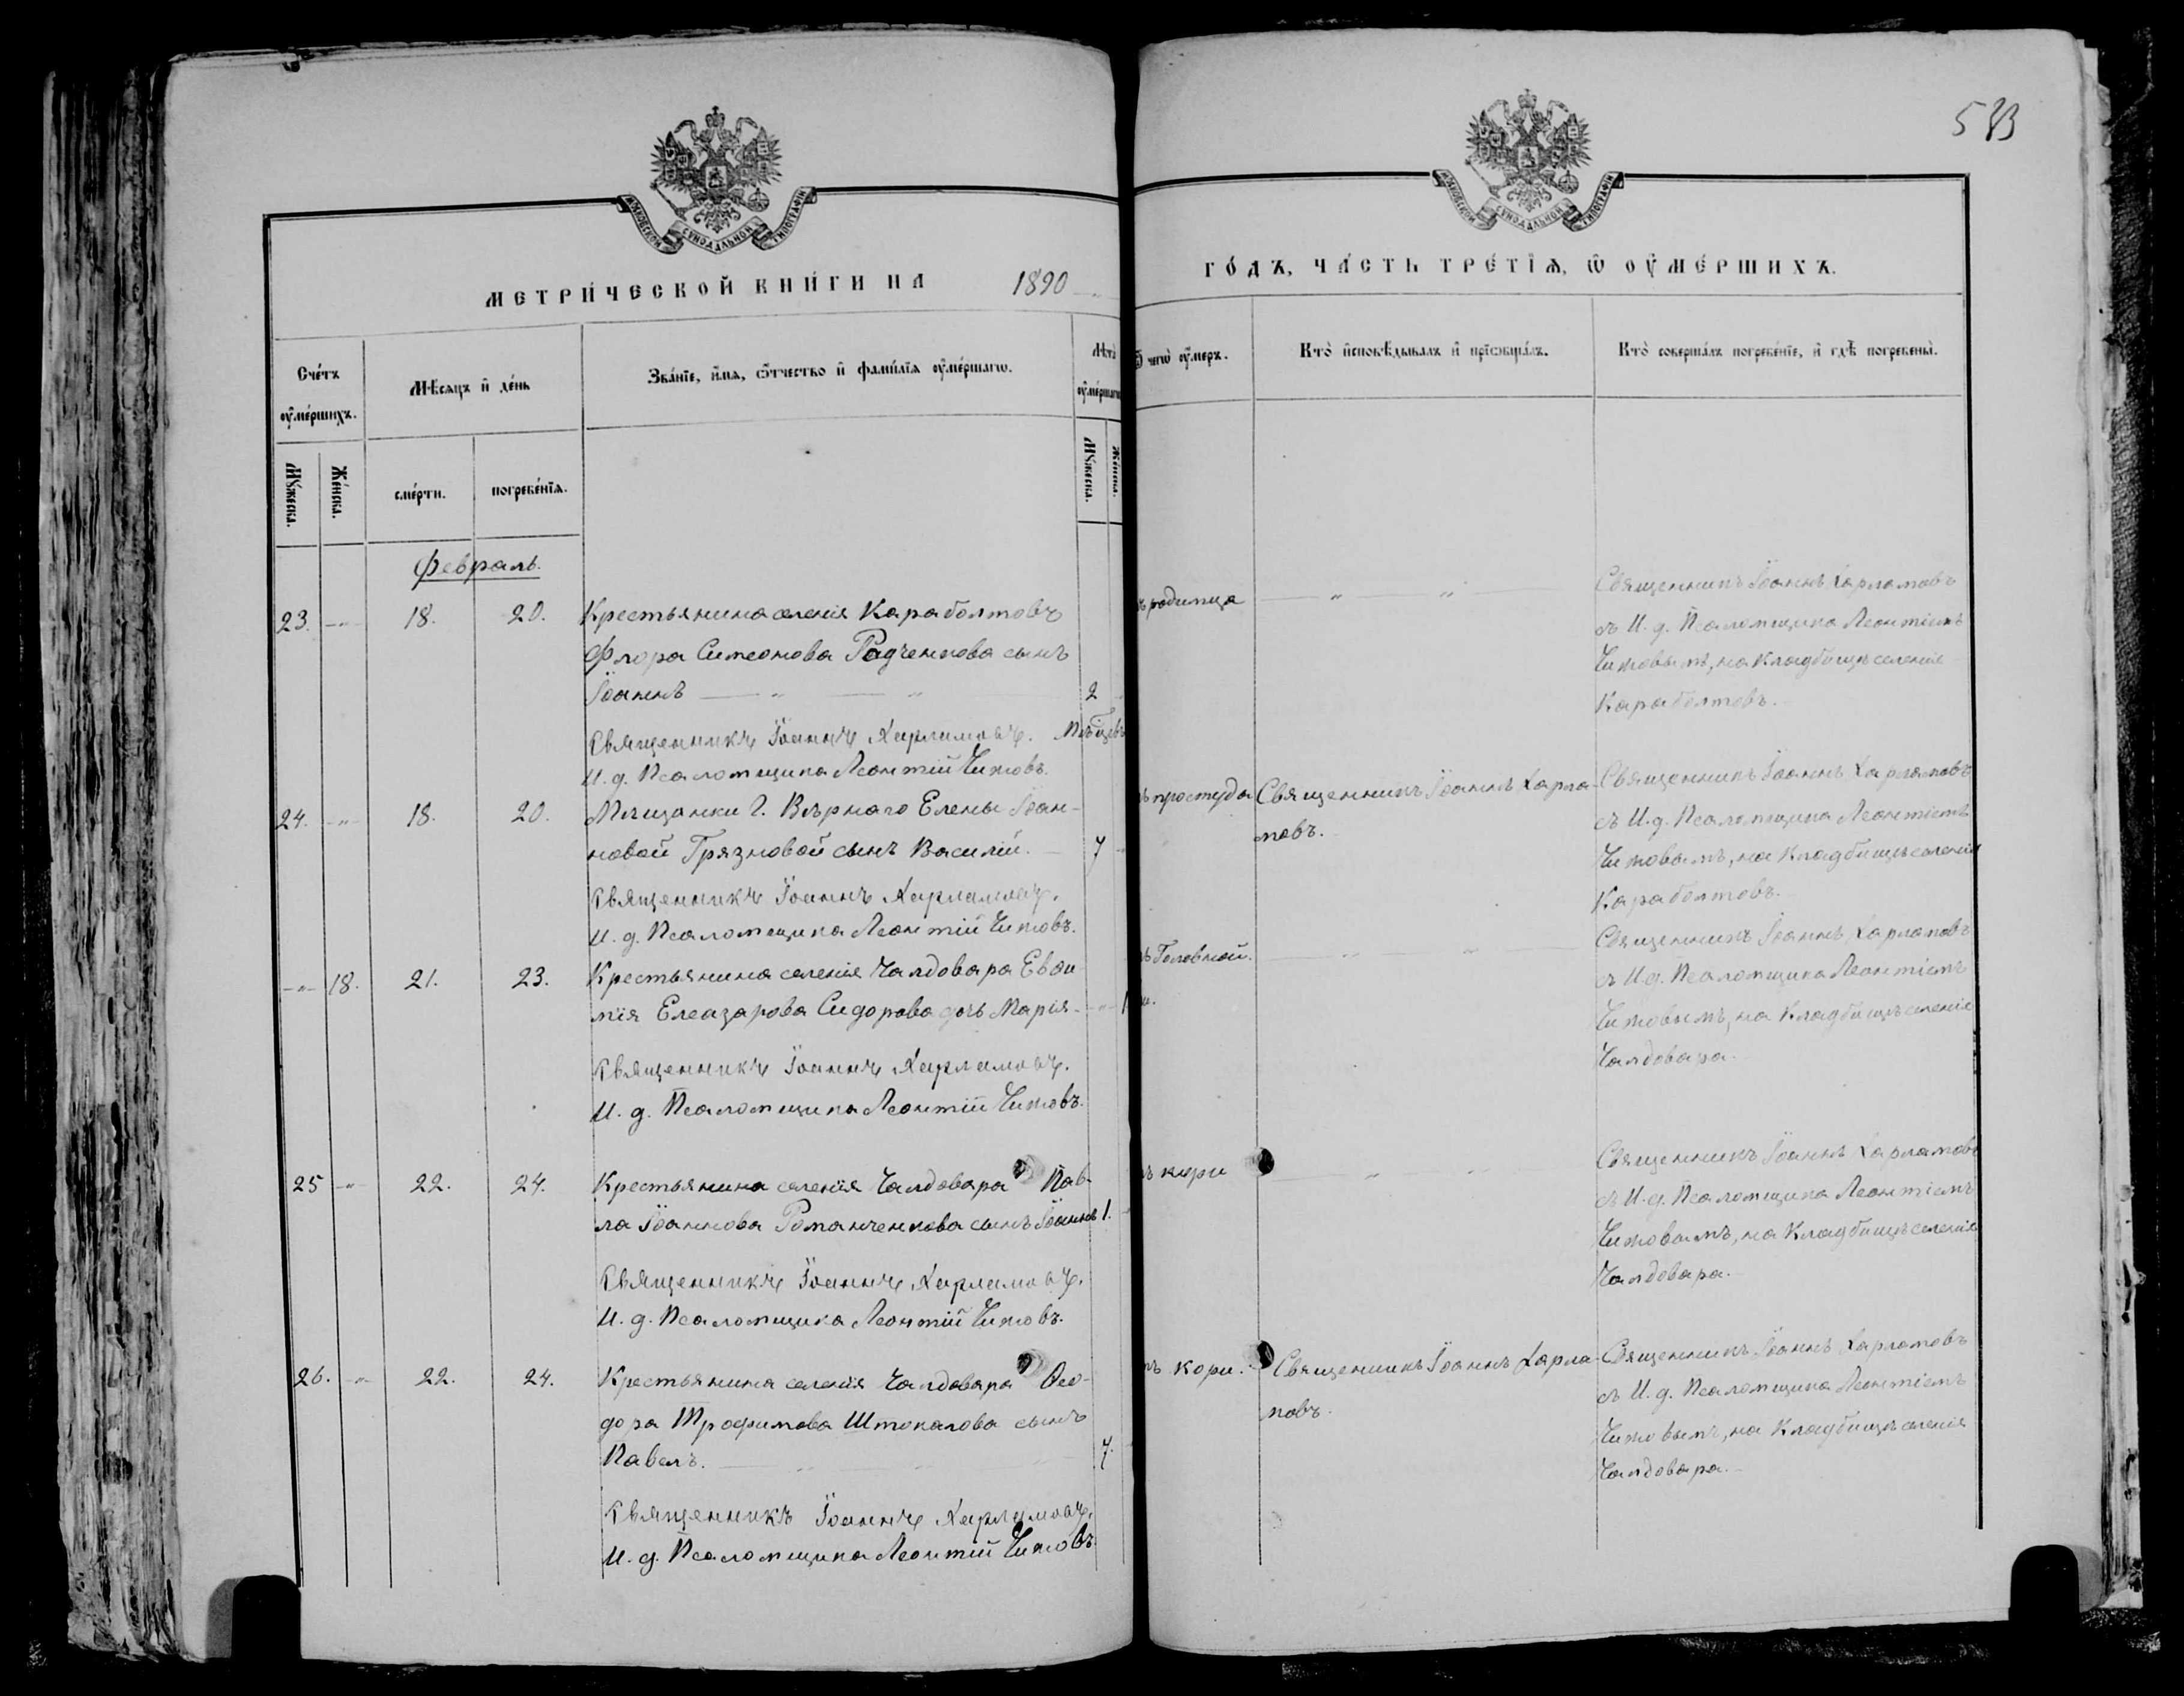 533
МОСКОВСКОЙ СѴНОДАЛЬНОЙ ТИПОГРАФІИ
МОСКОВСКОЙ СѴНОДАЛЬНОЙ ТИПОГРАФІИ
МЕТРИ́ЧЕСКОЙ КНИ́ГИ НА 1890
ГО́ДЪ, ЧА́СТЬ ТРЕ́ТІѦ, Ѿ ОУ҆МЕ́РШИХЪ.
Сче́тъ оу҆ме́ршихъ.
Мѣ́сяцъ и҆ де́нь
Зва́нїе, и҆́мя, ѻ҆́тчество и҆ фами́лїя оу҆ме́ршагѡ.
Лѣ́та оу҆ме́ршагѡ
Ѿ чегѡ̀ оу҆́меръ.
Кто̀ и҆сповѣ́дывалъ и҆ прїѻбща́лъ.
Кто̀ соверша́лъ погребе́нїе, и҆ гдѣ̀ погребены̀.
Мꙋ́жеска.
Же́нска.
сме́рти.
погребе́нїя.
Мꙋ́жеска.
Же́нска.
Февраль.
23. —"— 18. 20. Крестьянина селенія Караболтовъ
Флора Симеонова Радченкова сынъ
Іоаннъ — " — " 2
Священникъ Іоаннъ Харламовъ.
И. д. Псаломщика Леонтій Чижовъ.
родимца — " — " —
Священникъ Іоаннъ Харламовъ
съ И. д. Псаломщика Леонтіемъ
Чижовымъ, на кладбищѣ селенія
Караболтовъ.
24. —"— 18. 20. Мѣщанки г. Вѣрнаго Елены Іоан-
новой Грязновой сынъ Василій. — 7
Священникъ Іоаннъ Харламовъ.
И. д. Псаломщика Леонтій Чижовъ.
простуда Священникъ Іоаннъ Харла-
мовъ.
Священникъ Іоаннъ Харламовъ
съ И. д. Псаломщика Леонтіемъ
Чижовымъ, на кладбищѣ селенія
Караболтовъ.
—"— 18. 21. 23. Крестьянина селенія Чалдовара Евѳи-
мія Елеазарова Сидорова дочь Марія.
Священникъ Іоаннъ Харламовъ.
И. д. Псаломщика Леонтій Чижовъ.
Головной. — " — " —
Священникъ Іоаннъ Харламовъ
съ И. д. Псаломщика Леонтіемъ
Чижовымъ, на кладбищѣ селенія
Чалдовара.
25 —"— 22. 24. Крестьянина селенія Чалдовара Пав-
ла Іоаннова Романченкова сынъ Іоаннъ 1.
Священникъ Іоаннъ Харламовъ.
И. д. Псаломщика Леонтій Чижовъ.
кори — " — " —
Священникъ Іоаннъ Харламовъ
съ И. д. Псаломщика Леонтіемъ
Чижовымъ, на кладбищѣ селенія
Чалдовара.
26. —"— 22. 24. Крестьянина селенія Чалдовара Ѳео-
дора Трофимова Штокалова сынъ
Павелъ. — " — " — 7.
Священникъ Іоаннъ Харламовъ.
И. д. Псаломщика Леонтій Чижовъ
кори. Священникъ Іоаннъ Харла-
мовъ.
Священникъ Іоаннъ Харламовъ
съ И. д. Псаломщика Леонтіемъ
Чижовымъ, на кладбищѣ селенія
Чалдовара.